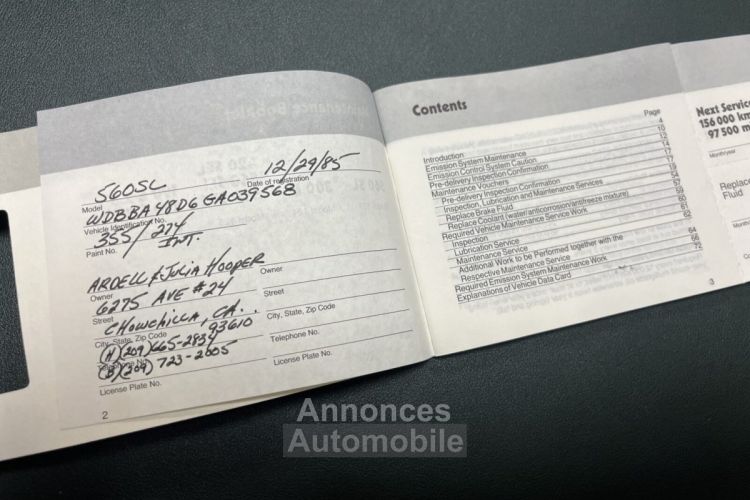 560SL 12/29/85
Model Date of registration
WDBBA48D6GA039568
Vehicle Identification No.
355/274
INT.
Paint No.
ARDELL & JULIA HOOPER
Owner Owner
6275 AVE #24
Street Street
CHOWCHILLA, CA.
93610
City, State, Zip Code City, State, Zip Code
(H) (209) 665-2834
Telephone No. Telephone No.
(B) (209) 723-2005
License Plate No. License Plate No.
2
Contents
Page
Introduction 4
Emission System Maintenance 10
Emission Control System Caution 12
Pre-delivery Inspection Confirmation 14
Maintenance Vouchers 17
Pre-delivery Inspection Confirmation 17
Inspection, Lubrication and Maintenance Services 19
Replace Brake Fluid 54
Replace Coolant (water/anticorrosion/antifreeze mixture) 57
Required Vehicle Maintenance Service Work 59
Inspection 60
Lubrication Service 61
Maintenance Service 62
Additional Work to be Performed together with the
Respective Maintenance Service 64
Required Emission System Maintenance Work 66
Explanations of Vehicle Data Card 72
3
Next Service
156 000 km
97 500 m
Month/year
Replace
Fluid
Annonces
Automobile